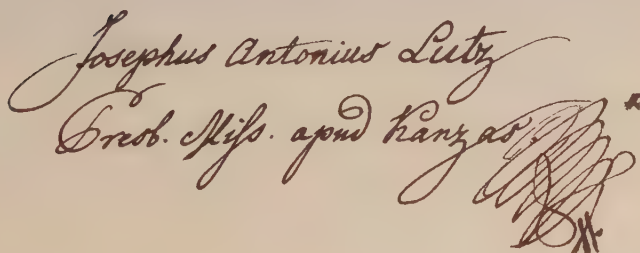 Josephus Antonius Lutz
Presb. Miss. apud Kanzas.